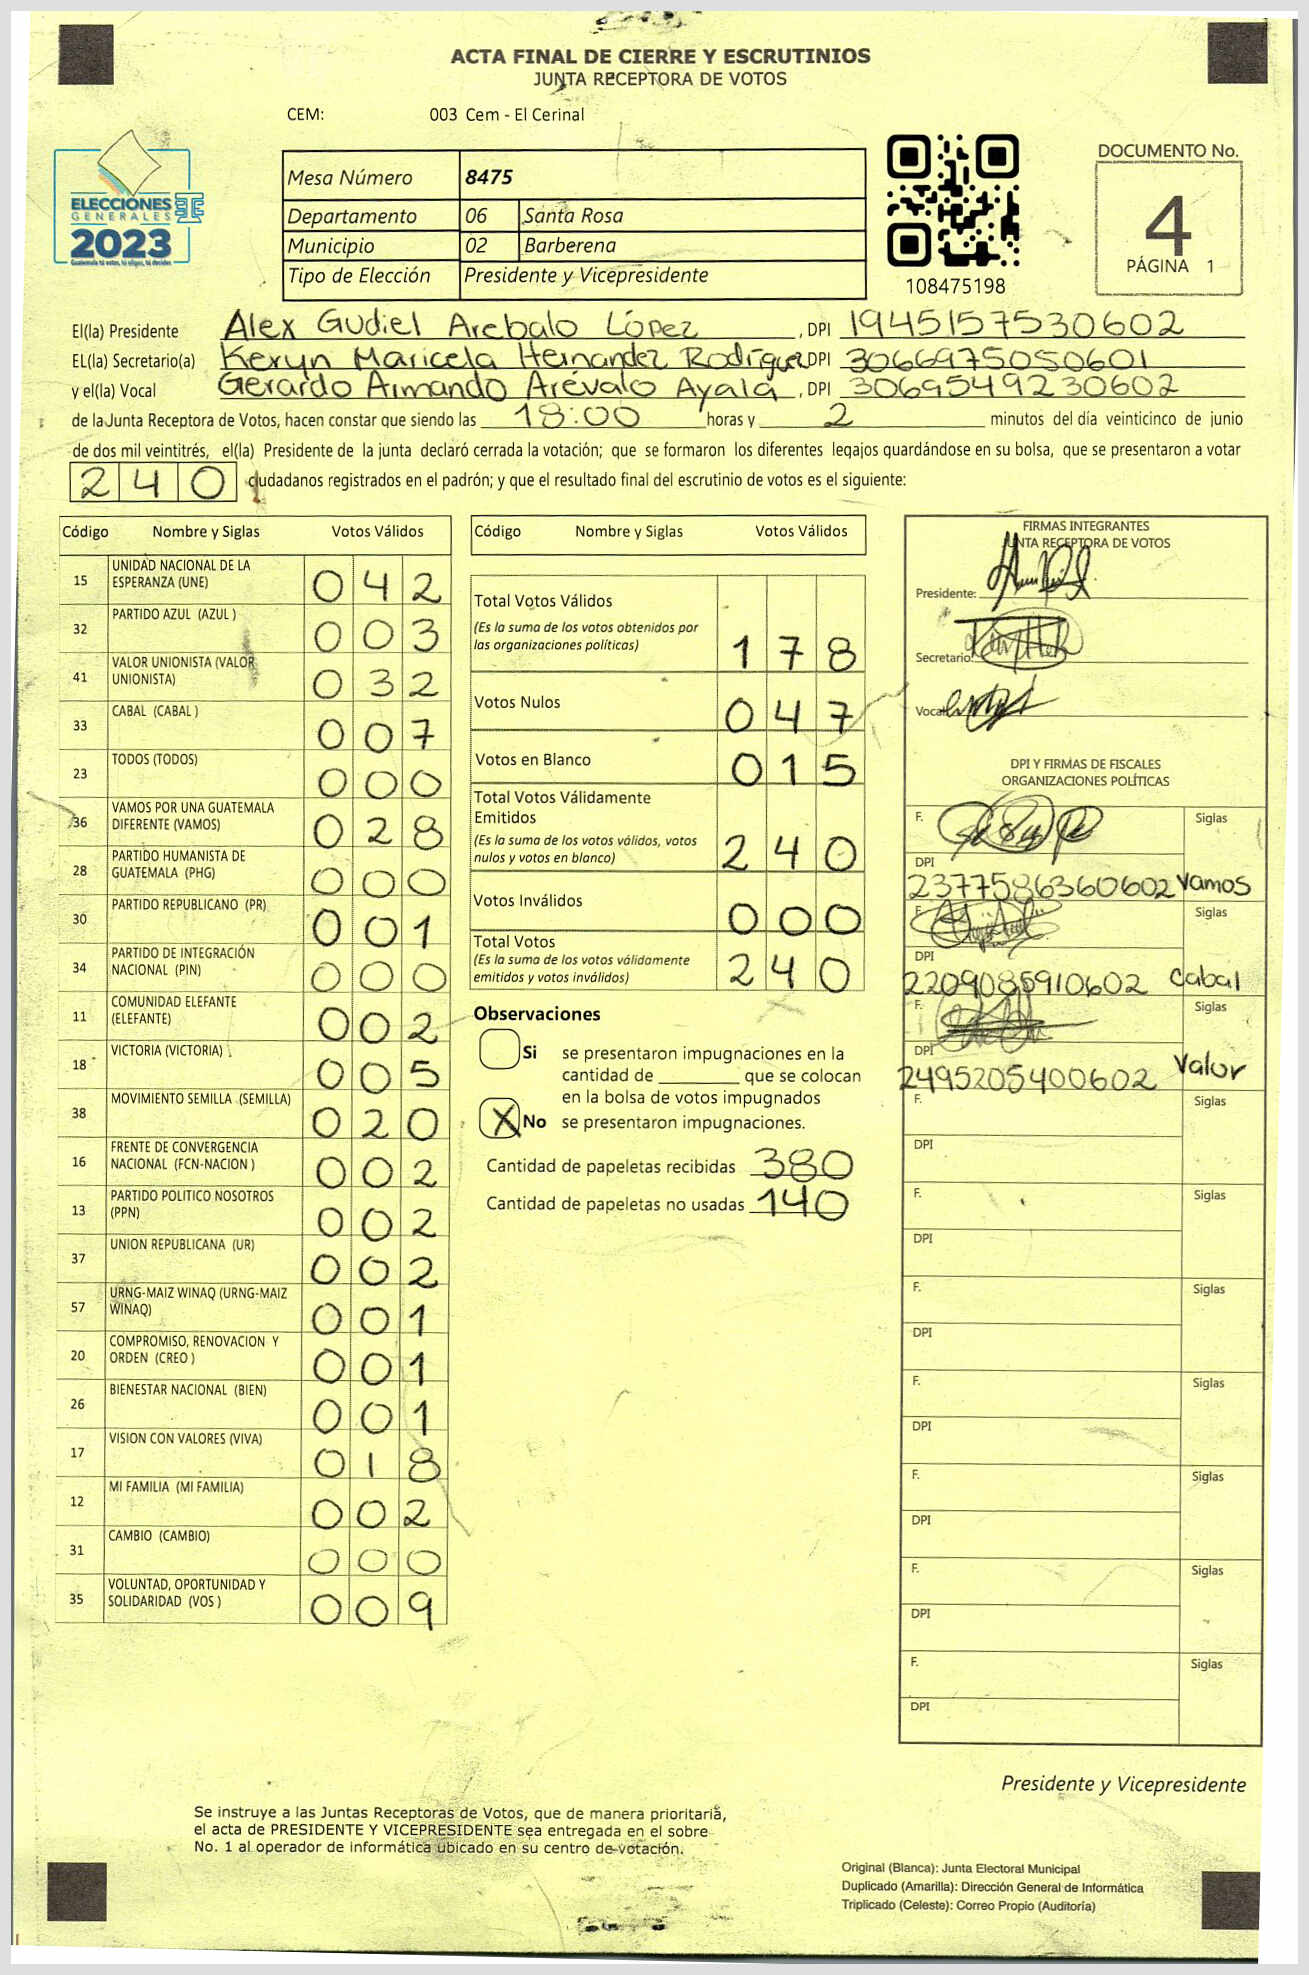 ACTA FINAL DE CIERRE Y ESCRUTINIOS
JUNTA RECEPTORA DE VOTOS
CEM: 003 Cem - El Cerinal
ELECCIONES
GENERALES
2023
Guatemala tú votas, tú eliges, tú decides
Mesa Número 8475
Departamento 06 Santa Rosa
Municipio 02 Barberena
Tipo de Elección Presidente y Vicepresidente
108475198
DOCUMENTO No.
4
PÁGINA 1
El(la) Presidente Alex Gudiel Arebalo López, DPI 1945157530602
EL(la) Secretario(a) Keryn Maricela Hernandez Rodríguez DPI 3066975050601
y el(la) Vocal Gerardo Armando Arévalo Ayala, DPI 3069549230602
de la Junta Receptora de Votos, hacen constar que siendo las 18:00 horas y 2 minutos del día veinticinco de junio
de dos mil veintitrés, el(la) Presidente de la junta declaró cerrada la votación; que se formaron los diferentes legajos guardándose en su bolsa, que se presentaron a votar
240 ciudadanos registrados en el padrón; y que el resultado final del escrutinio de votos es el siguiente:
Código Nombre y Siglas Votos Válidos
15 UNIDAD NACIONAL DE LA ESPERANZA (UNE) 042
32 PARTIDO AZUL (AZUL ) 003
41 VALOR UNIONISTA (VALOR UNIONISTA) 032
33 CABAL (CABAL ) 007
23 TODOS (TODOS) 000
36 VAMOS POR UNA GUATEMALA DIFERENTE (VAMOS) 028
28 PARTIDO HUMANISTA DE GUATEMALA (PHG) 000
30 PARTIDO REPUBLICANO (PR) 001
34 PARTIDO DE INTEGRACIÓN NACIONAL (PIN) 000
11 COMUNIDAD ELEFANTE (ELEFANTE) 002
18 VICTORIA (VICTORIA) 005
38 MOVIMIENTO SEMILLA (SEMILLA) 020
16 FRENTE DE CONVERGENCIA NACIONAL (FCN-NACION ) 002
13 PARTIDO POLITICO NOSOTROS (PPN) 002
37 UNION REPUBLICANA (UR) 002
57 URNG-MAIZ WINAQ (URNG-MAIZ WINAQ) 001
20 COMPROMISO, RENOVACION Y ORDEN (CREO ) 001
26 BIENESTAR NACIONAL (BIEN) 001
17 VISION CON VALORES (VIVA) 018
12 MI FAMILIA (MI FAMILIA) 002
31 CAMBIO (CAMBIO) 000
35 VOLUNTAD, OPORTUNIDAD Y SOLIDARIDAD (VOS ) 009
Código Nombre y Siglas Votos Válidos
Total Votos Válidos
(Es la suma de los votos obtenidos por
las organizaciones políticas) 178
Votos Nulos 047
Votos en Blanco 015
Total Votos Válidamente
Emitidos
(Es la suma de los votos válidos, votos
nulos y votos en blanco) 240
Votos Inválidos 000
Total Votos
(Es la suma de los votos válidamente
emitidos y votos inválidos) 240
Observaciones
Si se presentaron impugnaciones en la
cantidad de ________ que se colocan
en la bolsa de votos impugnados
X No se presentaron impugnaciones.
Cantidad de papeletas recibidas 380
Cantidad de papeletas no usadas 140
FIRMAS INTEGRANTES
JUNTA RECEPTORA DE VOTOS
Presidente:
Secretario:
Vocal
DPI Y FIRMAS DE FISCALES
ORGANIZACIONES POLÍTICAS
F. Siglas
DPI
2377586360602 Vamos
F. Siglas
DPI
2209085910602 Cabal
F. Siglas
DPI
2495205400602 Valor
F. Siglas
DPI
F. Siglas
DPI
F. Siglas
DPI
F. Siglas
DPI
F. Siglas
DPI
F. Siglas
DPI
F. Siglas
DPI
Presidente y Vicepresidente
Se instruye a las Juntas Receptoras de Votos, que de manera prioritaria,
el acta de PRESIDENTE Y VICEPRESIDENTE sea entregada en el sobre
No. 1 al operador de informática ubicado en su centro de votación.
Original (Blanca): Junta Electoral Municipal
Duplicado (Amarilla): Dirección General de Informática
Triplicado (Celeste): Correo Propio (Auditoría)